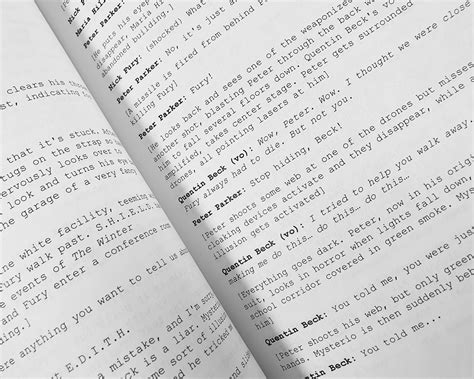 clears his
indicating
that it's stuck.
tugs on the strap
nervously looks over
look and turns his eyes
the garage of a very fancy
white facility, teeming
Fury walk past: S.H.I.E.L.D
the events of The Winter
and Fury enter a conference
anything you want to tell us
E.D.I.T.H.
a mistake, and I'm
Beck is a liar.
some sort of
he tricked
Maria
Peter Parker: No, it's just
[He puts his
disappear, Maria
abandoned building.]
Nick Fury: (shocked) What
[A missile is fired from behind
killing Fury]
Peter Parker: Fury!
[He looks back and sees one of the weaponized
another shot, blasting Peter through the back
him to fall several floors down. Quentin Beck's
amplified, takes center stage. Peter gets surrounded
drones, all pointing lasers at him]
Quentin Beck (vo): Wow, Peter. Wow. I thought we were close
Fury always had to die. But not you.
Peter Parker: Stop hiding, Beck!
[Peter shoots some web at one of the drones but misses
cloaking devices activate and they disappear, while
illusion gets activated]
Quentin Beck (vo): I tried to help you walk away.
making me do this… do this… do this…
[Everything goes dark. Peter, now in his
suit, looks in horror when lights fall down,
school corridor covered in green smoke.
him]
Quentin Beck: You told me, you were just
[Peter shoots his web, but only green
hands. Mysterio is then suddenly
Quentin Beck: You told me...